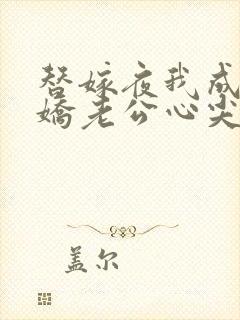 替嫁夜我成
娇老公心尖
盖尔